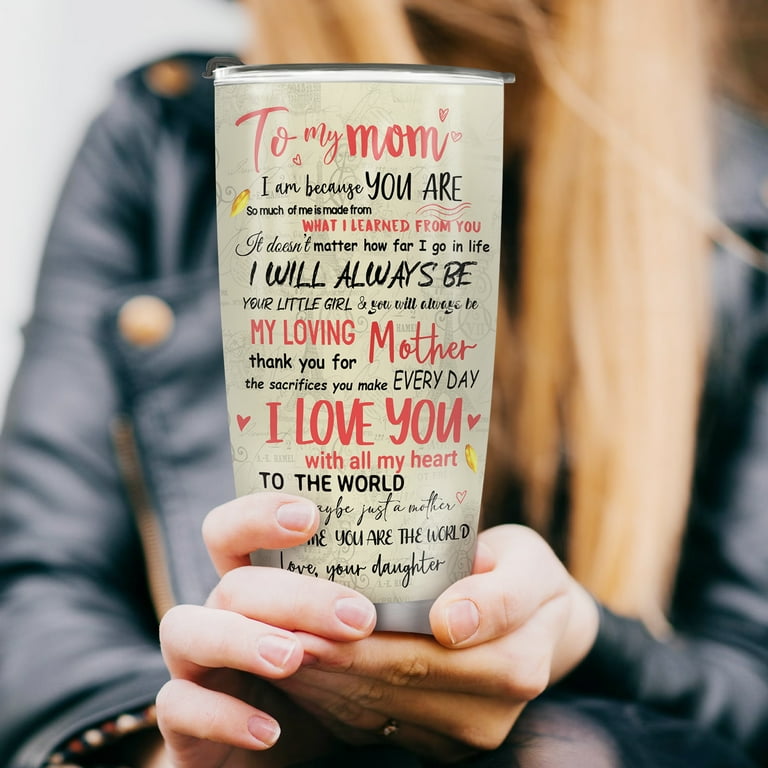 To my mom
I am because YOU ARE
So much of me is made from
WHAT I LEARNED FROM YOU
It doesn't matter how far I go in life
I WILL ALWAYS BE
YOUR LITTLE GIRL & you will always be
MY LOVING Mother
thank you for
the sacrifices you make EVERY DAY
I LOVE YOU
with all my heart
TO THE WORLD
just a mother
YOU ARE THE WORLD
Love, your daughter